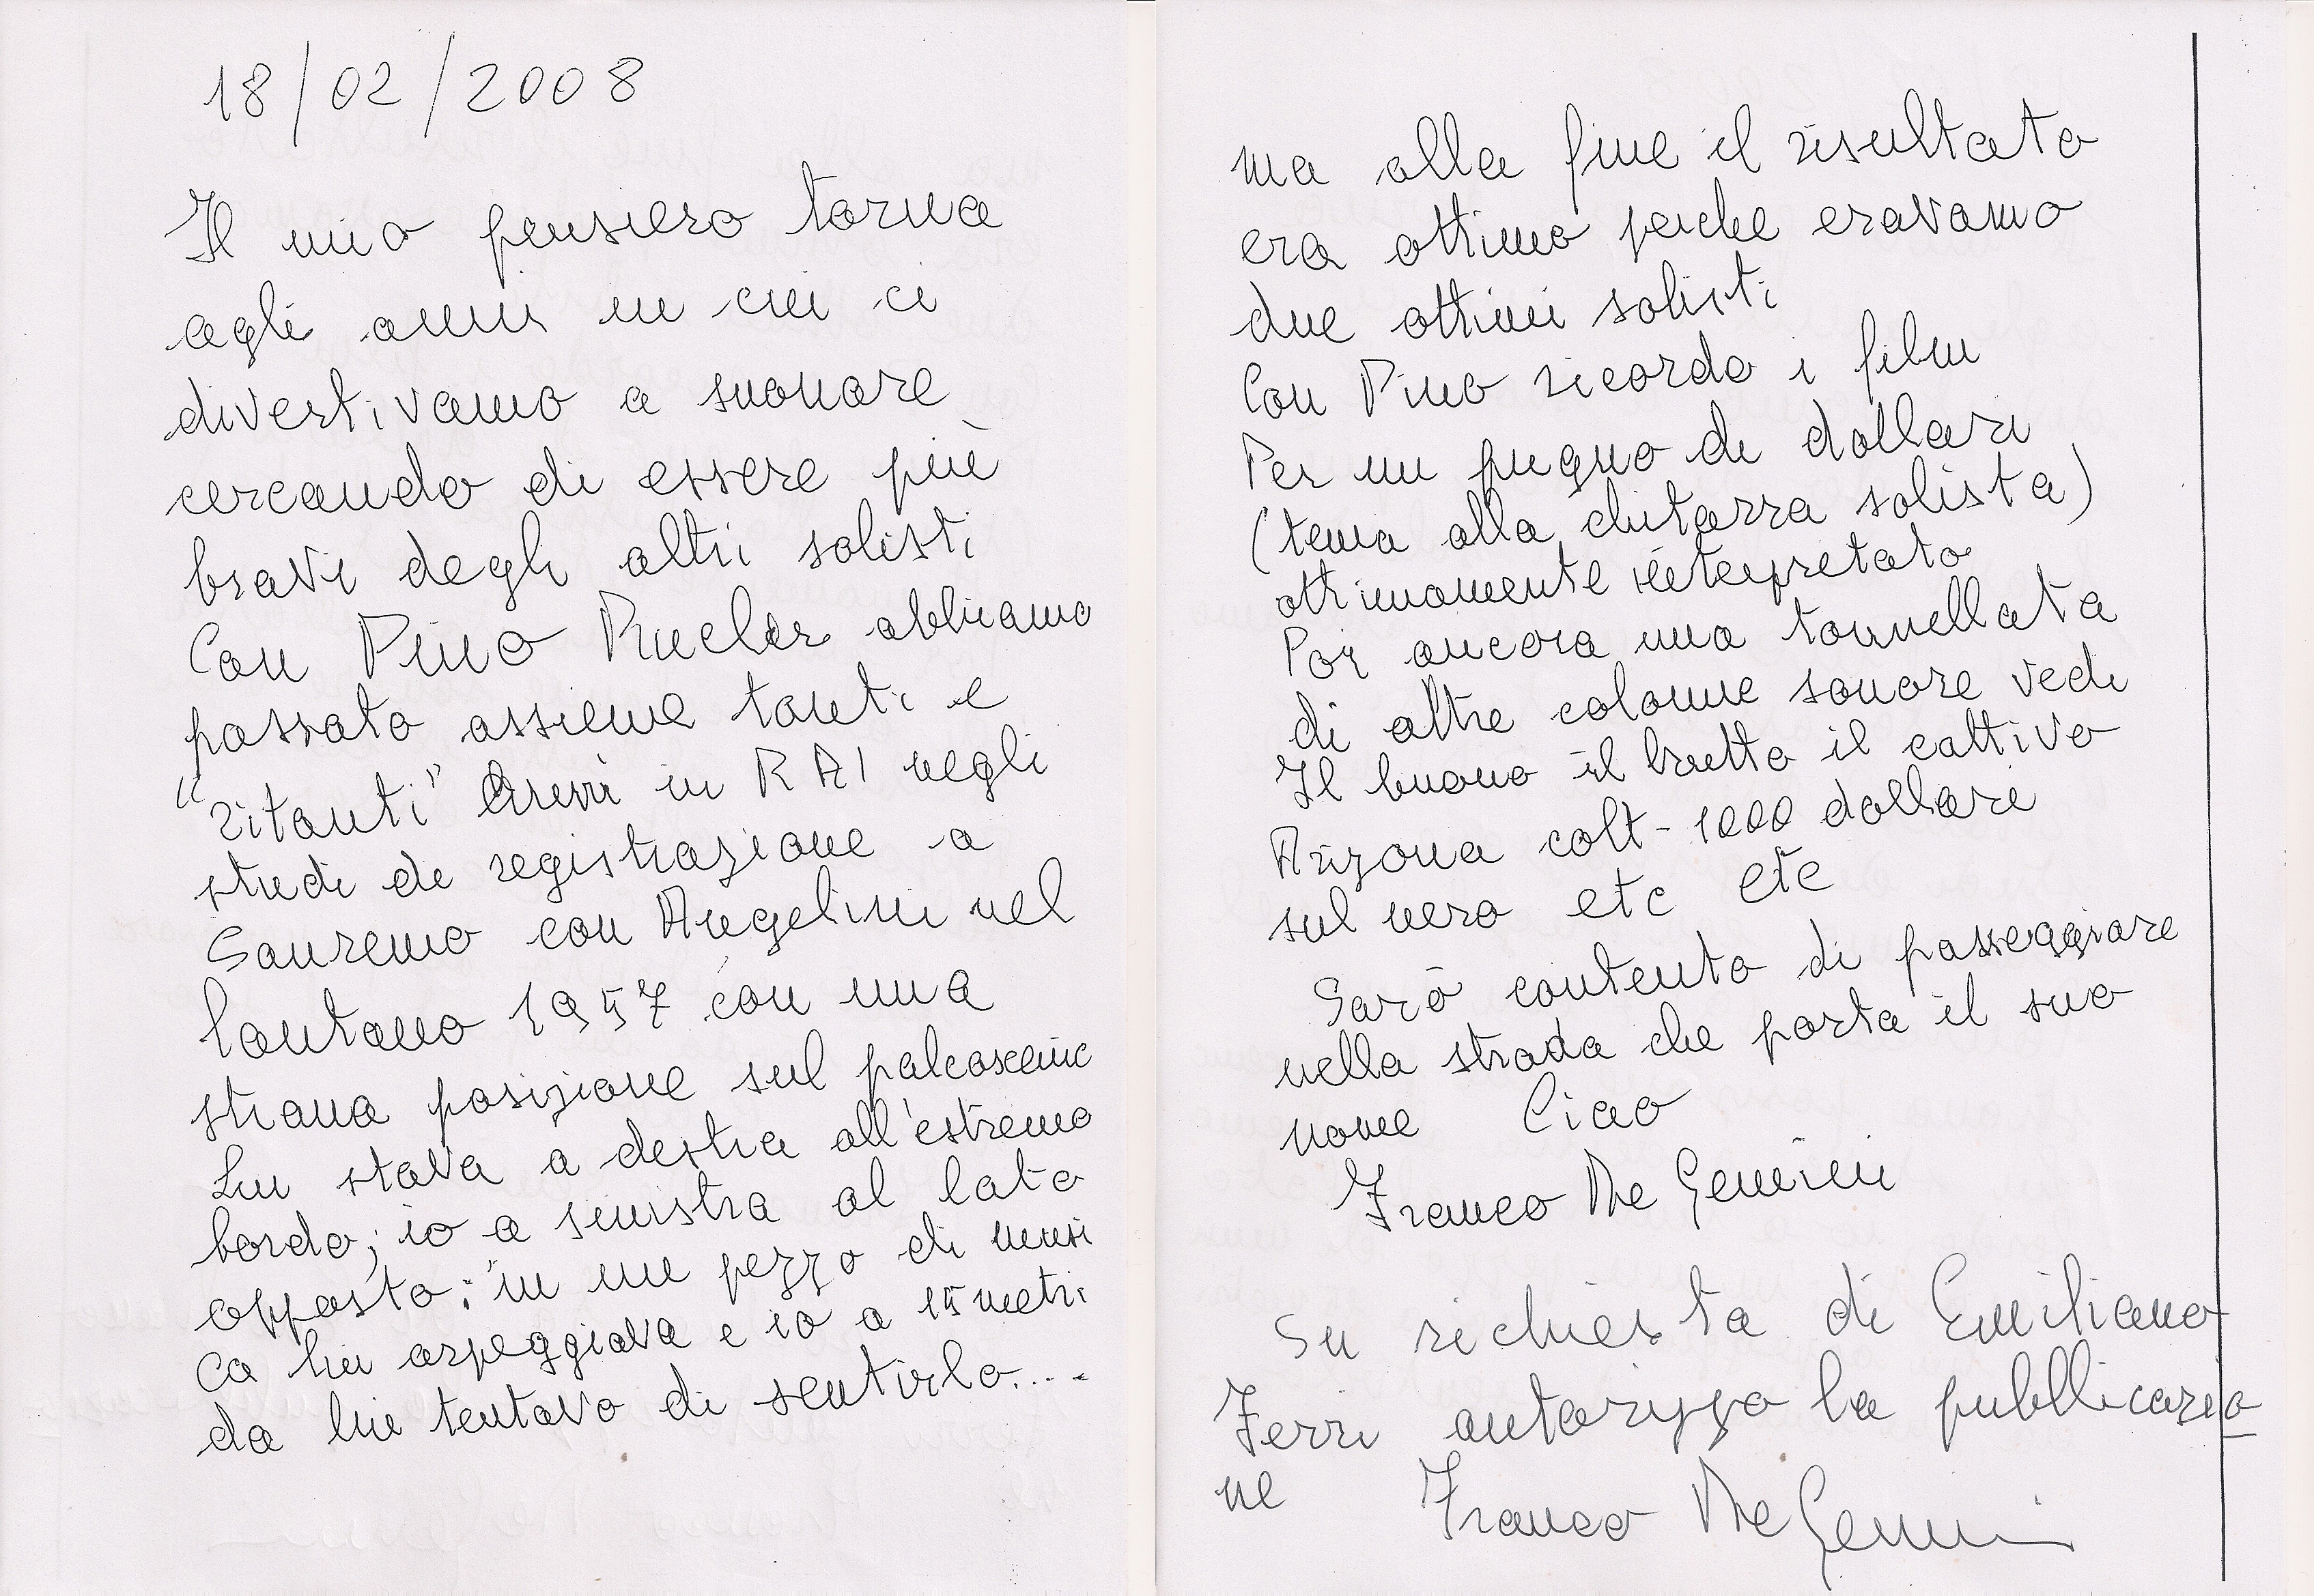 18/02/2008
Il mio pensiero torna
agli anni in cui ci
divertivamo a suonare
cercando di essere più
bravi degli altri solisti
Con Pino Rucher abbiamo
passato assieme tanti e
"ritanti" in RAI negli
studi di registrazione a
Sanremo con Angelini nel
lontano 1957 con una
strana posizione sul palcoscenic
Lui stava a destra all'estremo
bordo; io a sinistra al lato
opposto: in un pezzo di musi
ca lui arpeggiava e io a 15 metri
da lui tentavo di sentirlo....
ma alla fine il risultato
era ottimo perche eravamo
due ottimi solisti
Con Pino ricordo i film
Per un pugno di dollari
(tema alla chitarra solista)
ottimamente interpretato
Poi ancora una tonnellata
di altre colonne sonore vedi
Il buono il brutto il cattivo
Arizona colt - 1000 dollari
sul nero etc etc
Sarò contento di passeggiare
nella strada che porta il suo
nome Ciao
Franco De Gemini
Su richiesta di Emiliano
Ferri autorizzo la pubblicazio
ne Franco De Gemini